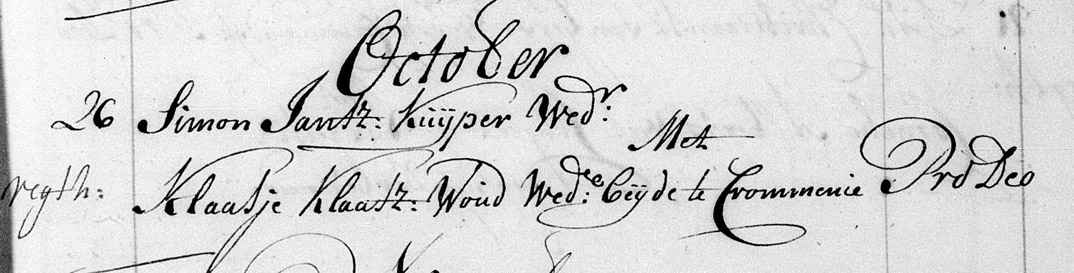 October
26 Simon Jantz: Kuÿper Wedr:
Met
regth: Klaatje Klaatz: Woud Wede: beÿde te Crommenie Pro Deo